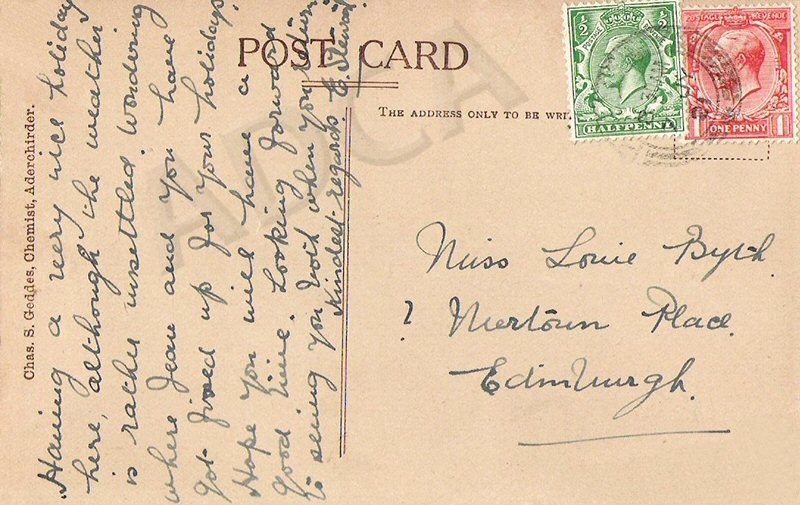 POST CARD
THE ADDRESS ONLY TO BE WRI
Chas. S. Geddes, Chemist, Aderchirder.
Having a very nice holiday
here, although the weather
is rather unsettled. Wondering
where Jean and you have
got fixed up for your holidays.
Hope you will have a
good time. Looking forward
to seeing you both when you return
Kindest regards. E. Stewart
½ POSTAGE ½
HALFPENNY
POSTAGE REVENUE
1 ONE PENNY 1
Miss Louie Byth
7 Mertoun Place.
Edinburgh.
ADCA